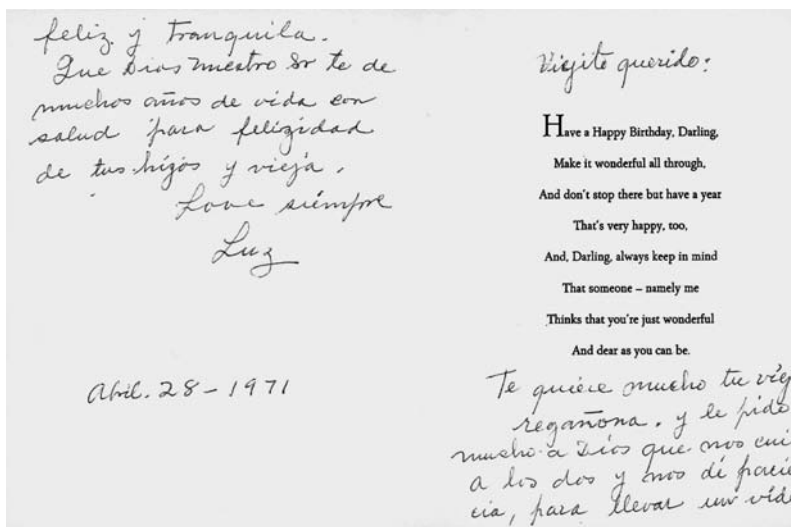 feliz y tranquila.
Que Dios nuestro Sr te de
muchos años de vida con
salud para felizidad
de tus hijos y vieja.
Love siempre
Luz
Abril. 28 - 1971
Viejito querido:
Have a Happy Birthday, Darling,
Make it wonderful all through,
And don't stop there but have a year
That's very happy, too,
And, Darling, always keep in mind
That someone – namely me
Thinks that you're just wonderful
And dear as you can be.
Te quiere mucho tu viej
regañona. y le pido
mucho a Dios que nos cui
a los dos y nos dé pacie
cia, para llevar un vid